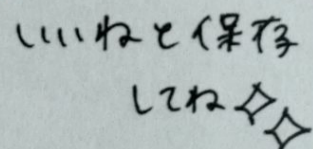 いいねと保存
してね✧✧